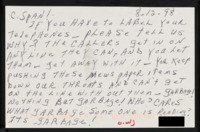 C-SPAN! 8-13-98
IF YOU HAVE TO LABEL YOUR
TELEPHONES - PLEASE TELL US
WHY? THE CALLERS GET IN ON
ANY LINE THEY CAN, AND YOU LET
THEM - GET AWAY WITH IT - YOU KEEP
PUSHING THOSE NEWS PAPER ITEMS
DOWN OUR THROATS AND CAN'T GET
ON THE LINE WITH OUT THEM - GARBAGE!
NOTHING BUT GARBAGE! WHO? CARES
WHAT GARBAGE SOME ONE IS READING!
ITS GARBAGE!